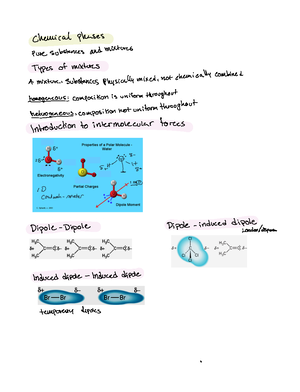 Chemical phases
Pure substances and mixtures
Types of mixtures
A mixture: Substances physically mixed, not chemically combined
homogeneous: composition is uniform throughout
heterogeneous: composition not uniform throughout
Introduction to intermolecular forces
Properties of a Polar Molecule -
Water
Electronegativity
Partial Charges
Dipole Moment
Dipole - Dipole
Dipole - induced dipole
H₃C
H₃C
C=O
δ+
δ-
Induced dipole - Induced dipole
δ+ δ- δ+ δ-
Br — Br Br — Br
temporary dipoles